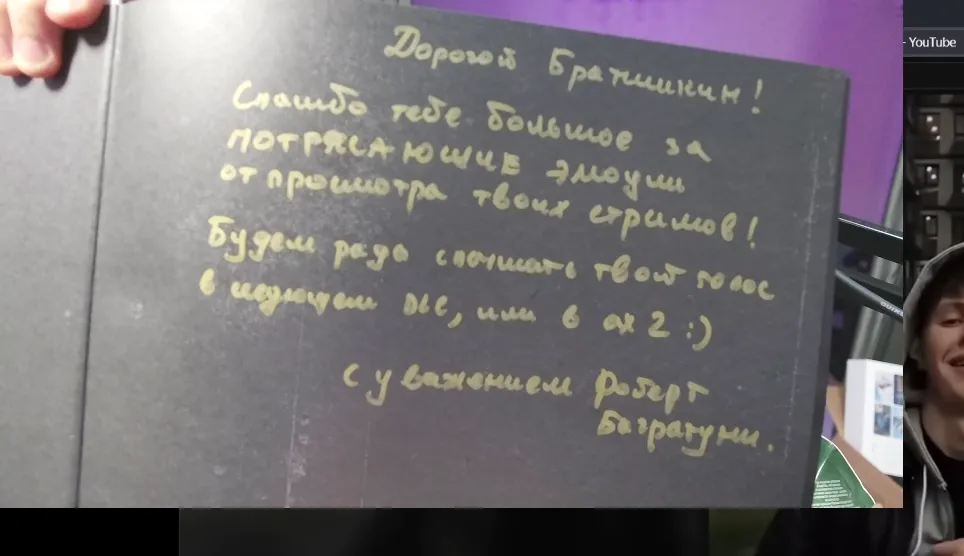 Дорогой Братишкин!
Спасибо тебе большое за
ПОТРЯСАЮЩИЕ эмоции
от просмотра твоих стримов!
Будем рады слышать твой голос
в следующем DLC, или в ах 2 :)
с уважением Роберт
Багратуни.
- YouTube